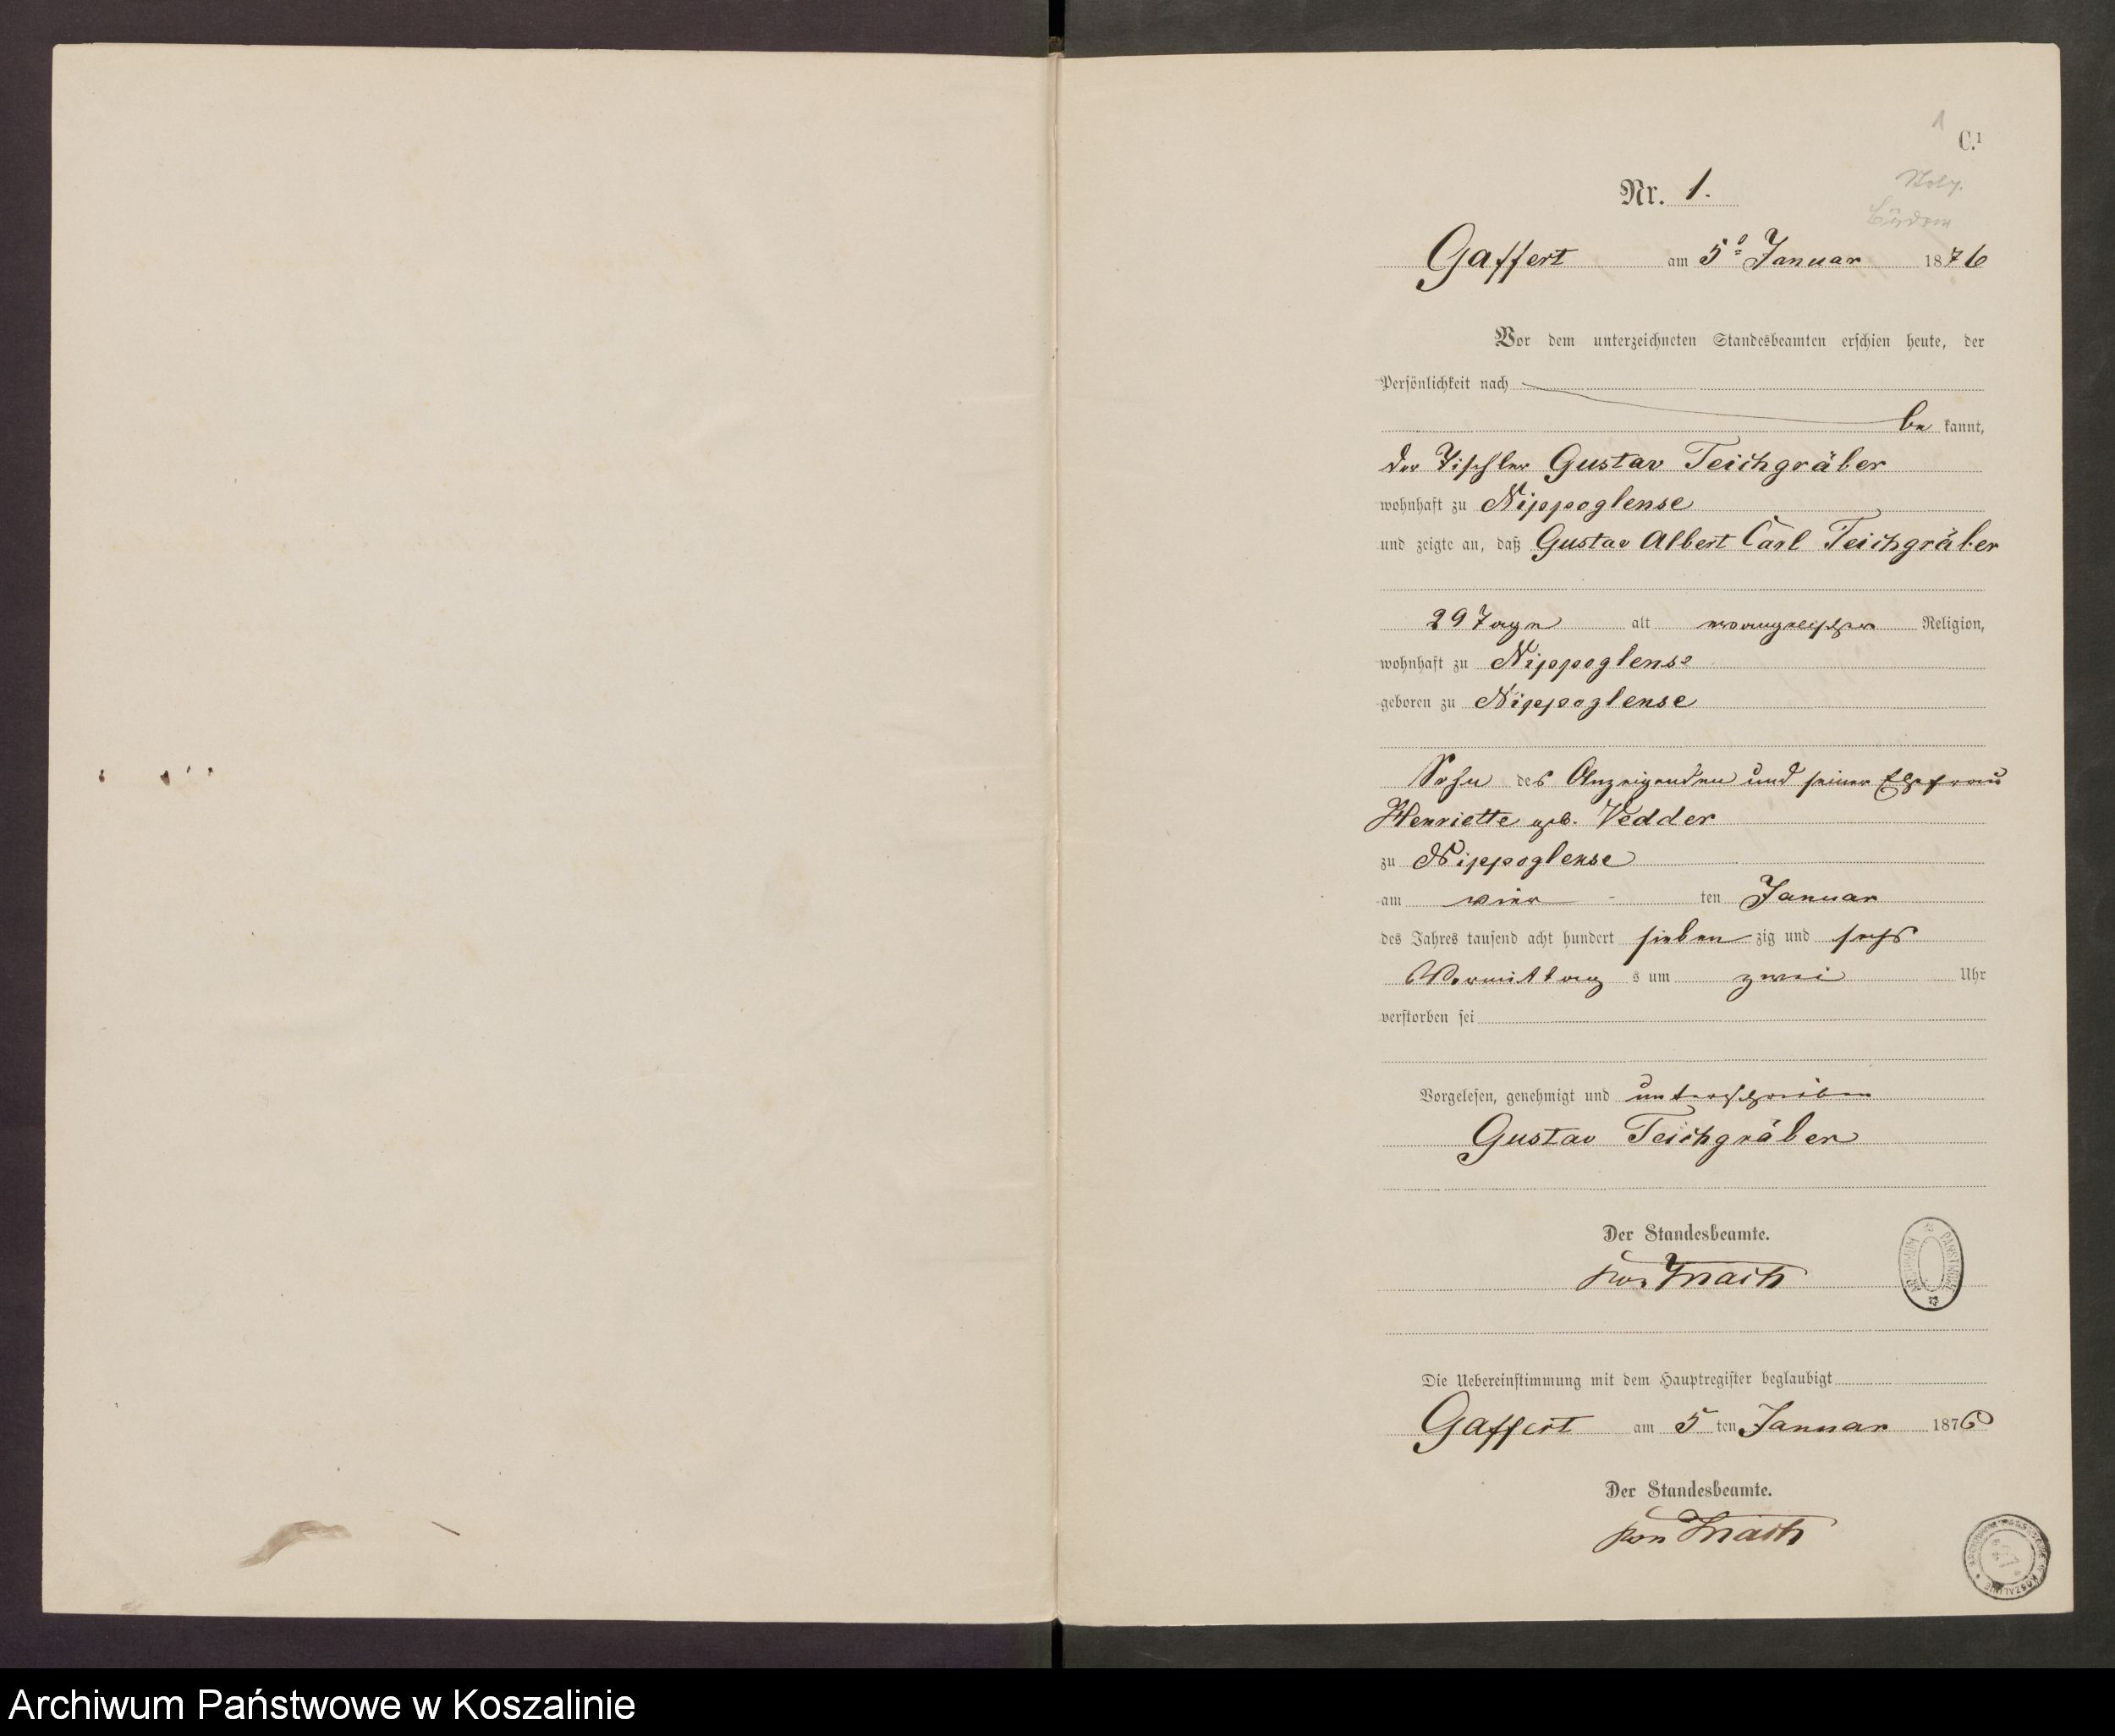 1
C.¹
Nr. 1.
Gaffert am 5ᵗ Januar 1876
Vor dem unterzeichneten Standesbeamten erschien heute, der
Persönlichkeit nach
be kannt,
der Tischler Gustav Teichgräber
wohnhaft zu Nippoglense
und zeigte an, daß Gustav Albert Carl Teichgräber
29 Tage alt evangelischer Religion,
wohnhaft zu Nippoglense
geboren zu Nippoglense
Sohn des Anzeigenden und seiner Ehefrau
Henriette geb. Vedder
zu Nippoglense
am vier ten Januar
des Jahres tausend acht hundert sieben zig und sechs
Vormittag s um zwei Uhr
verstorben sei
Vorgelesen, genehmigt und unterschrieben
Gustav Teichgräber
Der Standesbeamte.
von Mach
ARCHIWUM PAŃSTWOWE
Die Uebereinstimmung mit dem Hauptregister beglaubigt
Gaffert am 5 ten Januar 1876
Der Standesbeamte.
von Mach
Archiwum Państwowe w Koszalinie